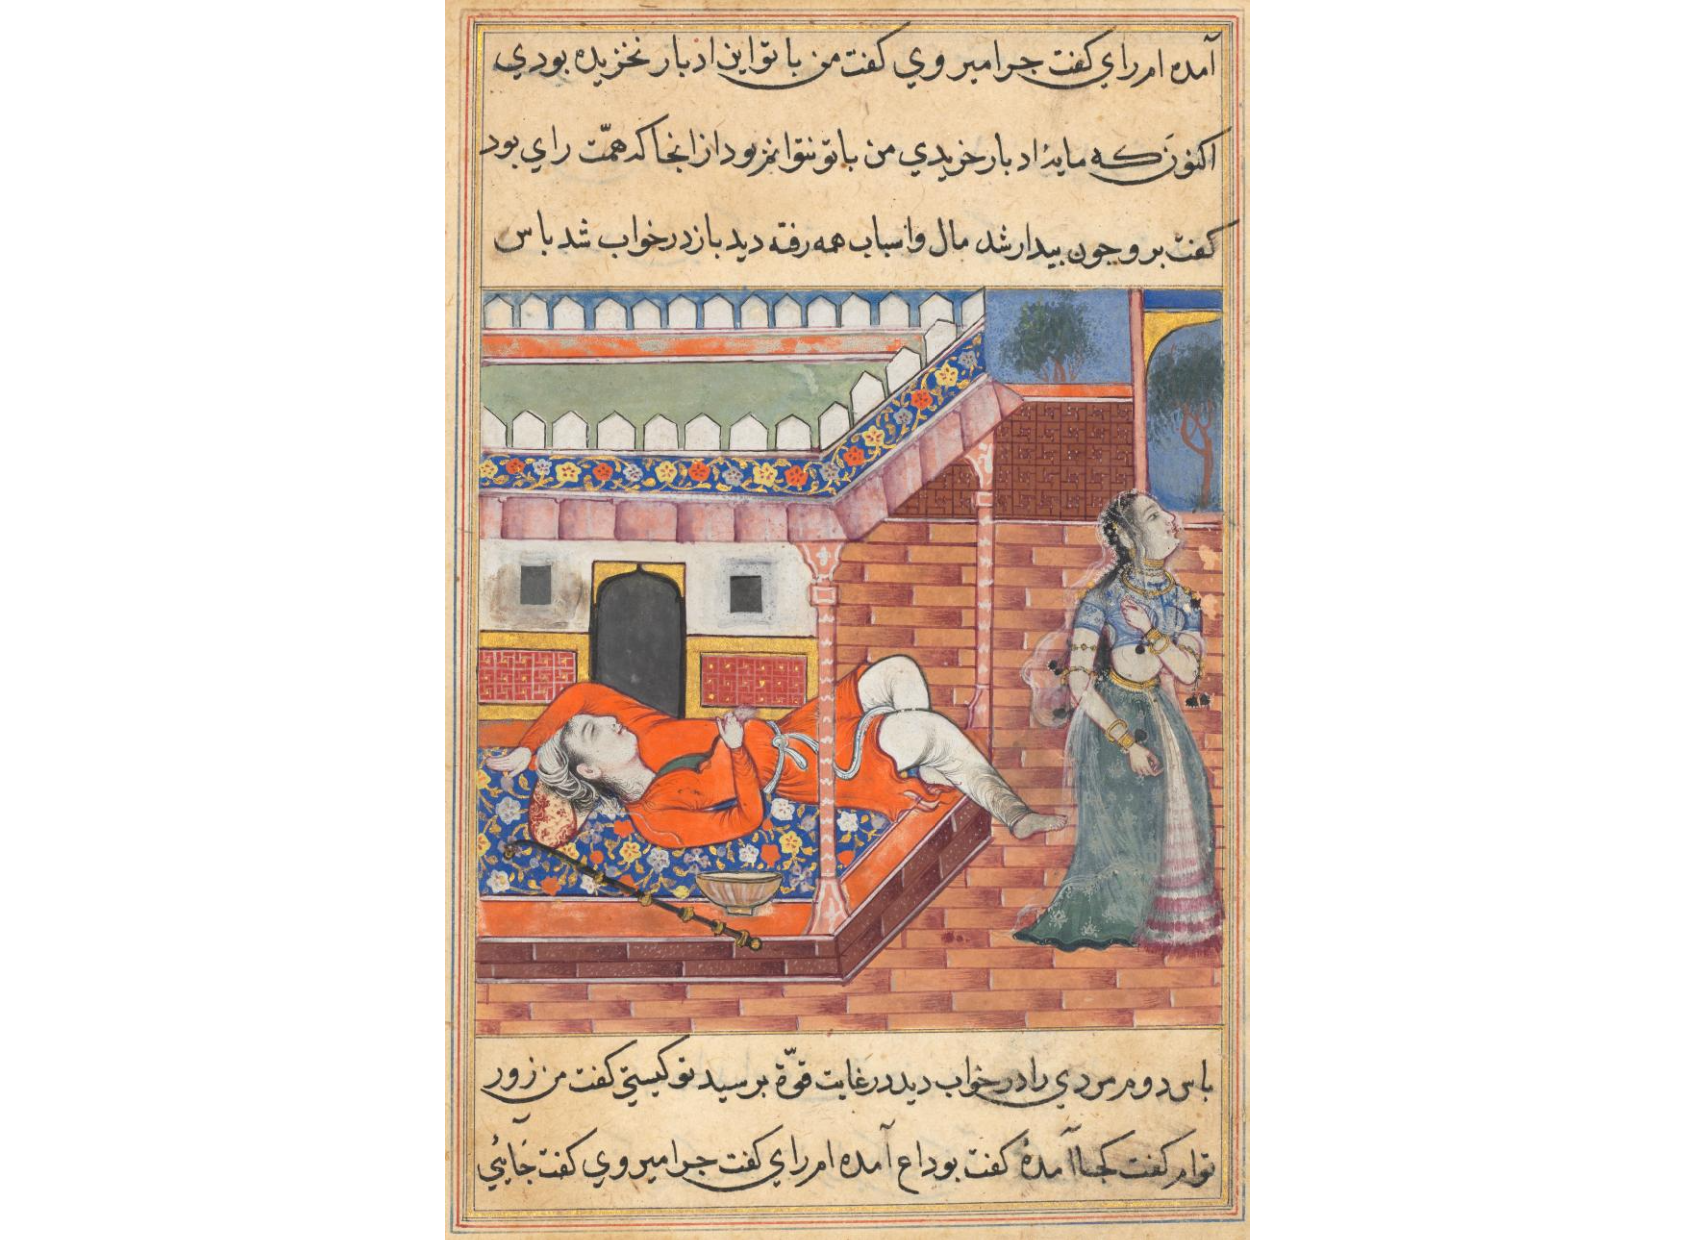 آمده ام راي كفت جرا ميروي كفت من با تو اين ادبار نخزيده بودي
اكنون كه مايهٔ ادبار خريدي من با تو نتوانم بود از انجا كه همّت راي بود
كفت برو جون بيدار شد مال واسباب همه رفته ديد باز در خواب شد باس
باس دوم مردي را در خواب ديد در غايت قوّة برسيد تو كيستي كفت من زور
توام كفت كجا آمدهٔ كفت بوداع آمده ام راي كفت جرا ميروي كفت جائي